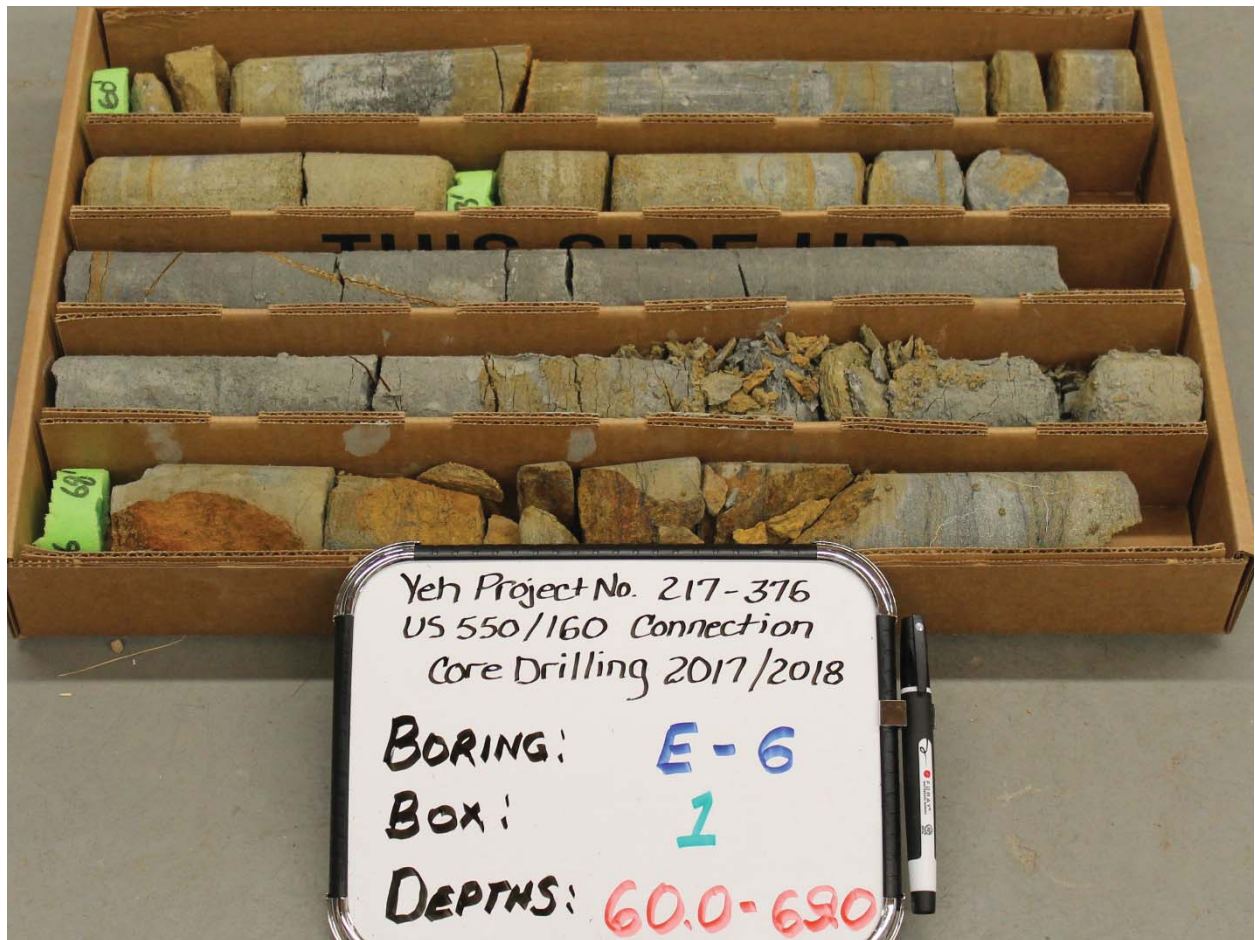 60'
THIS SIDE UP
68'
Yeh Project No. 217-376
US 550/160 Connection
Core Drilling 2017/2018
BORING: E-6
BOX: 1
DEPTHS: 60.0-69.0